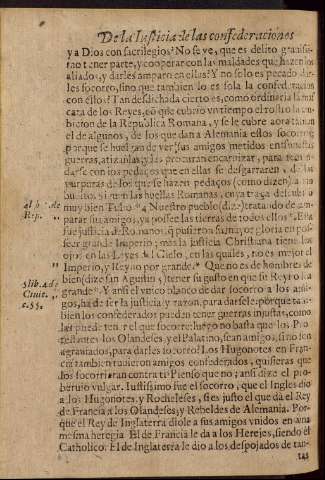 De la Iusticia de las confederaciones
y a Dios con sacrilegios? No se ve, que es delito grauissi-
mo tener parte, y cooperar con las maldades que hazen los
aliados, y darles amparo en ellas? Y no solo es pecado dar-
les socorro, sino que tambien lo es sola la confederacion
con estos? Tan desdichada cierto es, como ordinaria la
cata de los Reyes, q̃ cubriò vn tiempo el rostro la
bicion de la Republica Romana, y se le cubre aora tambien
el de algunos, de los que dan a Alemania estos socorros
porque se huelgan de ver sus amigos metidos en
guerras, atizalas, y las procuran encaminar, para
se con los pedaços que en ellas se desgarraren, de las
purpuras de los que se hazen pedaços (como dizen) a
las huellas Romanas, cuya traça descubriò
muy bien Tulio. Nuestro pueblo (dize) tratando de am-
parar sus amigos, ya possee las tierras de todos ellos. Essa
fue justicia de Romanos, q̃ pusieron su mayor gloria en pos-
seer grande Imperio; mas la justicia Christiana tiene los
ojos en las Leyes del Cielo, en las quales, no es mejor el
Imperio, y Reyno por grande. Que no es de hombres de
bien (dize san Agustin) tener su gusto en que su Reyno sea
grande. Y ansi el vnico blanco de dar socorro a los ami-
gos, ha de ser la justicia y razon, para darsele: porque tam-
bien los confederados pueden tener guerras injustas, como
las puede tener el que socorre: luego no basta que los Pro-
testantes los Olandeses, y el Palatino, sean amigos, si no son
agrauiados, para darles socorro. Los Hugonotes en Fran-
cia tambien tuuieron amigos confederados, quisieras que
los socorrieran contra ti? Pienso que no; ansi dize el pro-
berbio vulgar. Iustissimo fue el socorro, que el Ingles dio
a los Hugonotes, y Rocheleses, si es justo el que dà el Rey
de Francia a los Olandeses, y Rebeldes de Alemania. Por-
que el Rey de Inglaterra diole a sus amigos vnidos en vna
mesma heregia. El de Francia le da a los Herejes, siendo èl
Catholico. El de Inglaterra le dio a los despojados de tan-
tas
Rep.
5 lib. 4. de
Ciuit.